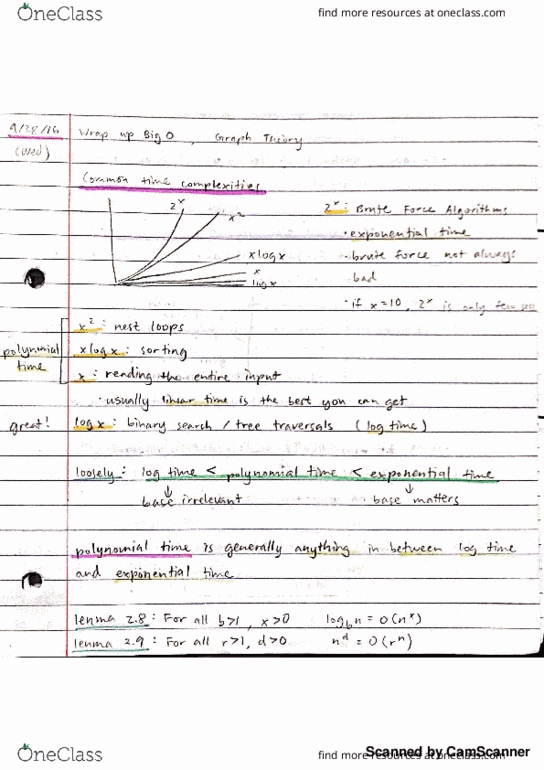 OneClass
find more resources at oneclass.com
9/28/16
Wrap up Big O , Graph Theory
(wed)
Common time complexities
2^x
x^2
x log x
x
log x
2^x : Brute Force Algorithms
· exponential time
· brute force not always
bad
· if x=10, 2^x is only few
x^2 : nest loops
polynomial
time
x log x : sorting
x : reading the entire input
· usually linear time is the best you can get
great!
log x : binary search / tree traversals (log time)
loosely : log time < polynomial time < exponential time
↓ ↓
base irrelevant base matters
polynomial time is generally anything in between log time
and exponential time
lemma 2.8 : For all b>1 , x>0 log_b n = O(n^x)
lemma 2.9 : For all r>1, d>0 n^d = O(r^n)
Scanned by CamScanner
OneClass
find more resources at oneclass.com